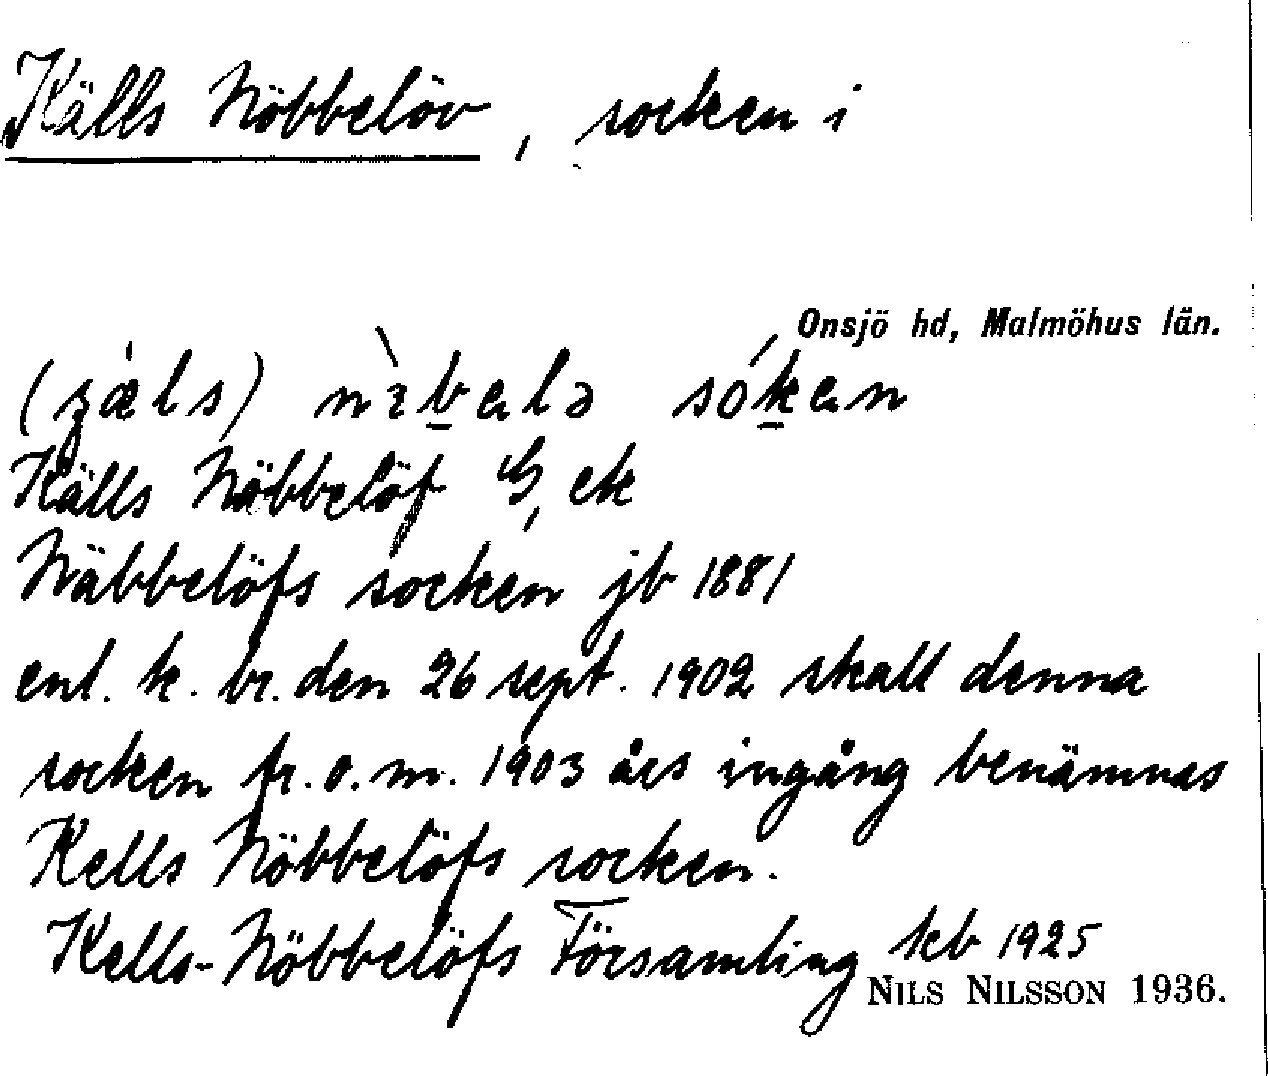 Källs Nöbbelöv, socken i
Onsjö hd, Malmöhus län.
Källs Nöbbelöf G, ek
Näbbelöfs socken jb 1881
enl. k. br. den 26 sept. 1902 skall denna
socken fr. o. m. 1903 års ingång benämnas
Kells Nöbbelöfs socken.
Kells-Nöbbelöfs Församling kb 1925
NILS NILSSON 1936.